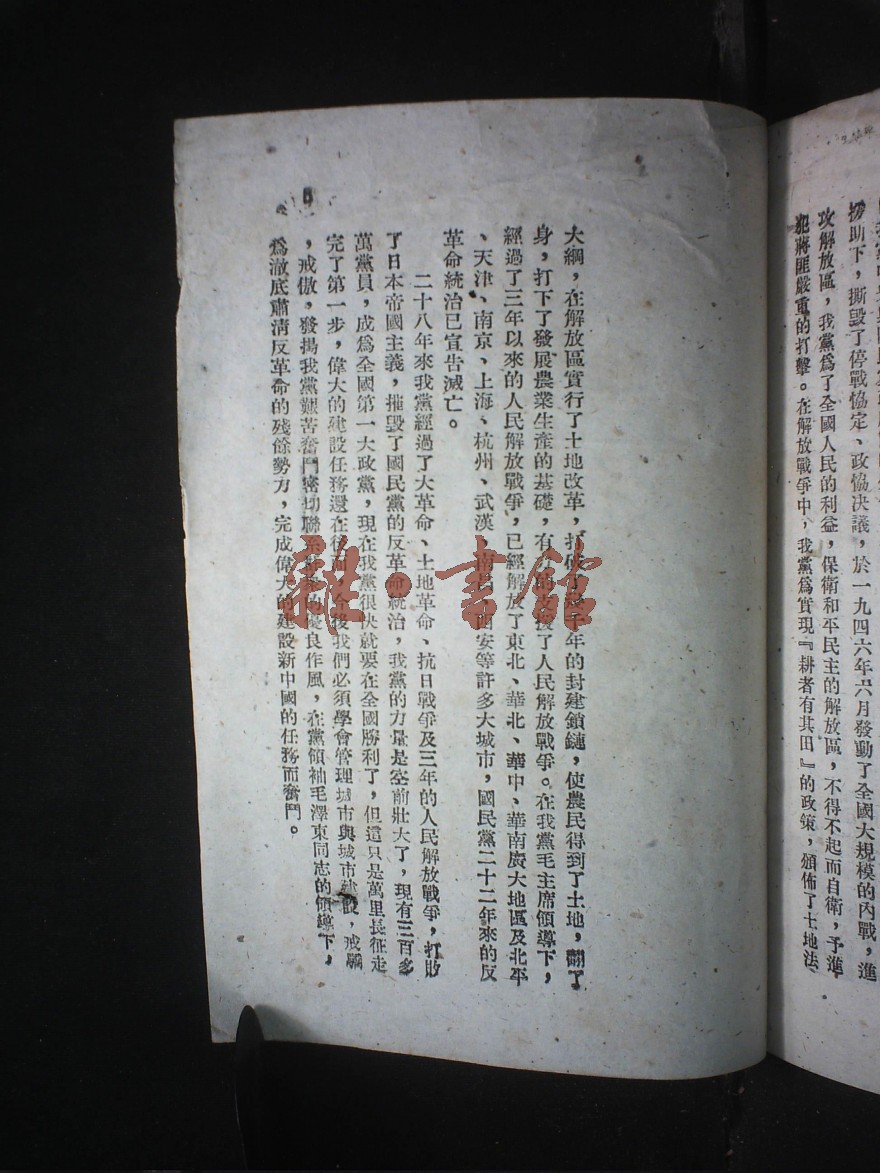 援助下，撕毀了停戰協定、政協決議，於一九四六年六月發動了全國大規模的內戰，進
攻解放區，我黨爲了全國人民的利益，保衛和平民主的解放區，不得不起而自衛，予進
犯蔣匪嚴重的打擊。在解放戰爭中，我黨爲實現『耕者有其田』的政策，頒佈了土地法
大綱，在解放區實行了土地改革，打破了幾千年的封建鎖鏈，使農民得到了土地，翻了
身，打下了發展農業生產的基礎，有力的支援了人民解放戰爭。在我黨毛主席領導下，
經過了三年以來的人民解放戰爭，已經解放了東北、華北、華中、華南廣大地區及北平
、天津、南京、上海、杭州、武漢、南昌、西安等許多大城市，國民黨二十二年來的反
革命統治已宣告滅亡。
二十八年來我黨經過了大革命、土地革命、抗日戰爭及三年的人民解放戰爭，打敗
了日本帝國主義，摧毀了國民黨的反革命統治，我黨的力量是空前壯大了，現有三百多
萬黨員，成爲全國第一大政黨，現在我黨很快就要在全國勝利了，但這只是萬里長征走
完了第一步，偉大的建設任務還在後面，今後我們必須學會管理城市與城市建設，戒驕
，戒傲，發揚我黨艱苦奮鬥密切聯系的優良作風，在黨領袖毛澤東同志的領導下，
爲澈底肅清反革命的殘餘勢力，完成偉大的建設新中國的任務而奮鬥。
雜·書館